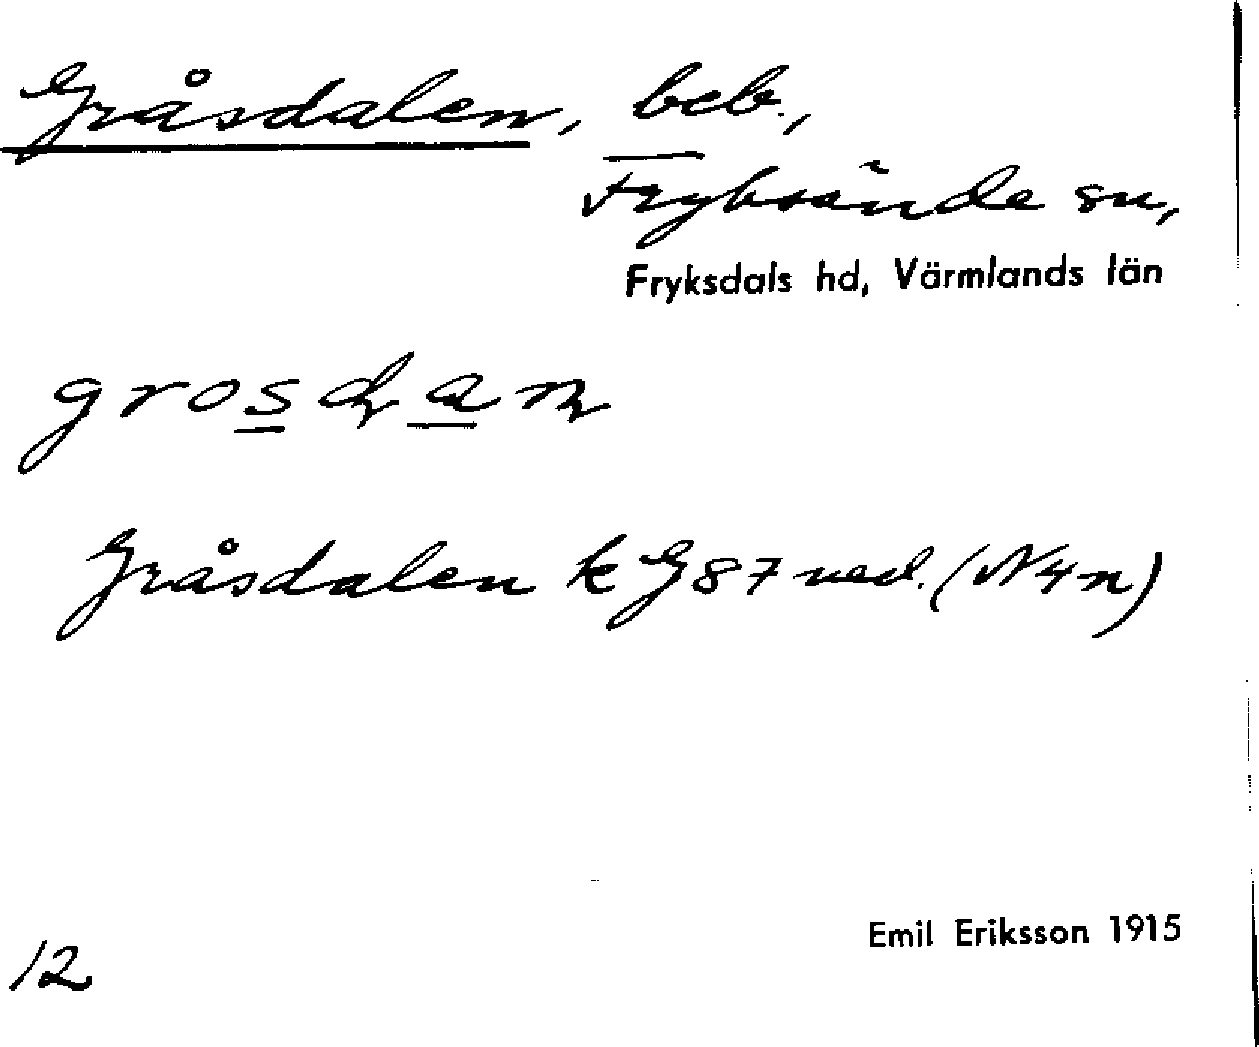 Gråsdalen, beb.,
Fryksände sn,
Fryksdals hd, Värmlands län
Gråsdalen k G 87 ned. (N 4 n)
Emil Eriksson 1915
12